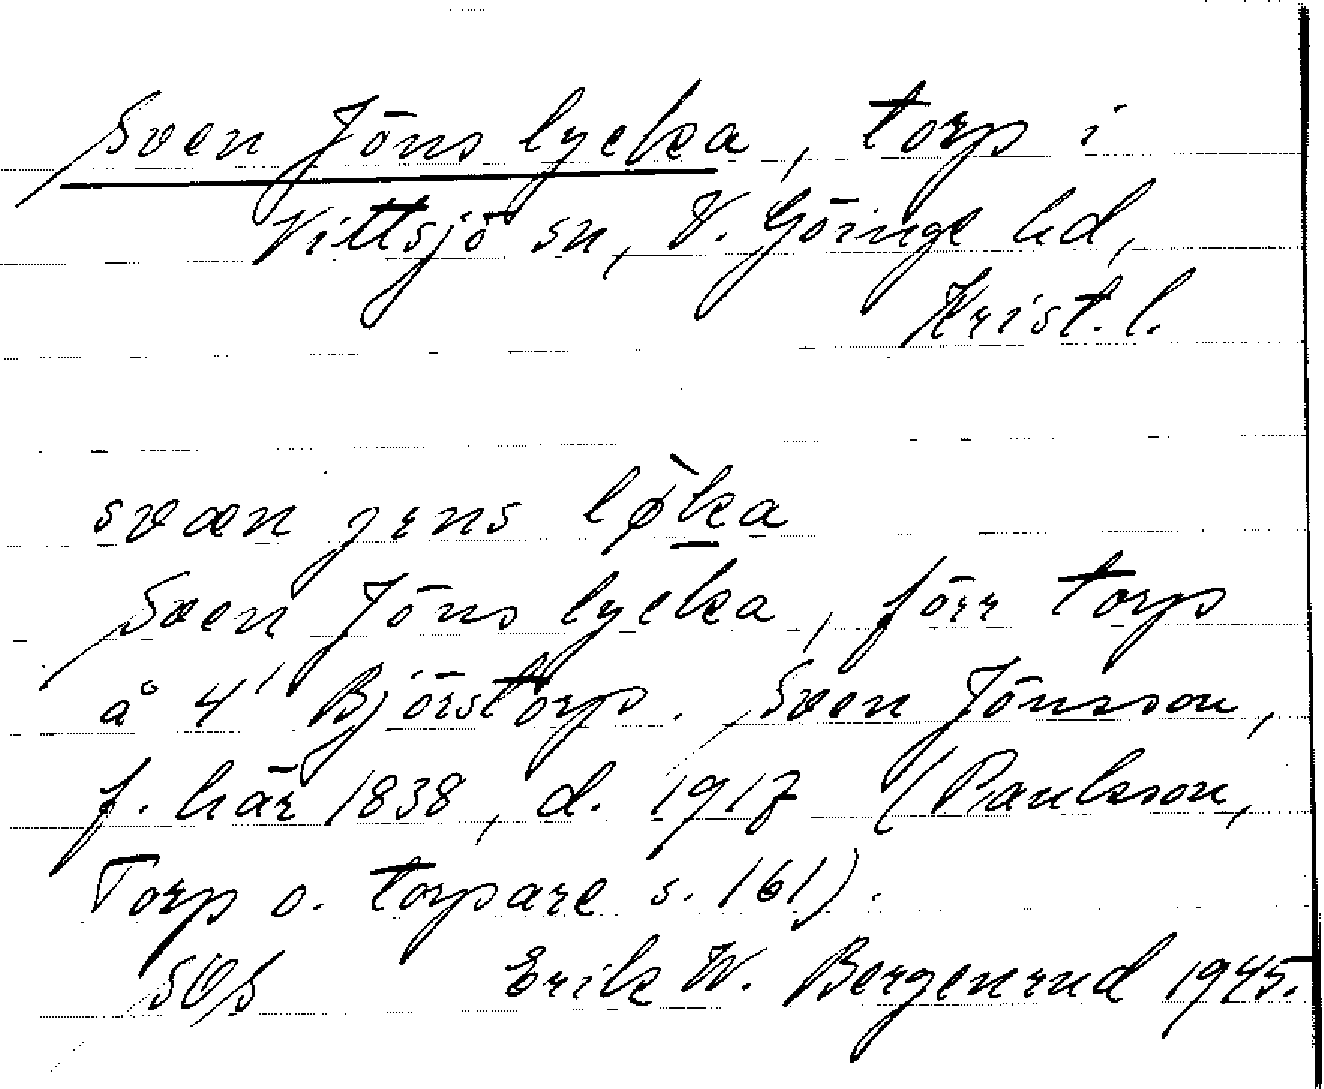 Sven Jöns lycka, torp i
Vittsjö sn, V. Göinge hd,
Krist. l.
svæn jɛns lø̀ka
Sven Jöns lycka, förr torp
å 4¹ Björstorp. Sven Jönsson,
f. här 1838, d. 1917 (Paulsson,
Torp o. torpare s. 161).
SOS Erik W. Bergenrud 1945.